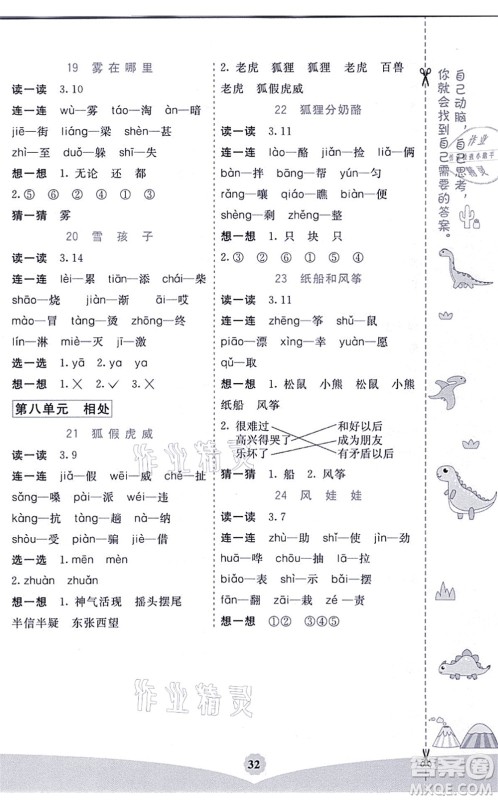 19 雾在哪里
读一读 3.10
连一连 wù—雾 táo—淘 àn—暗
jiē—街 liáng—梁 chà—岔
zhì—至 duǒ—躲 shī—失
想一想 1.无论 还 都
2.⑤ ⑥ ② ③ ① ④
猜一猜 雾
20 雪孩子
读一读 3.14
连一连 lèi—累 tiān—添 chái—柴
shāo—烧 jiàn—渐 āi—哎
mào—冒 tàng—烫 zhōng—终
lín—淋 miè—灭
选一选 1.yā 2.ya ya
想一想 1.✕ 2.✓ 3.✕
第八单元 相处
21 狐假虎威
读一读 3.9
连一连 jiǎ—假 wēi—威 chě—扯
sǎng—嗓 pài—派 yí—遗
kàng—抗 tàng—趟 nà—纳
shòu—受 piàn—骗 jiè—借
选一选 1.mēn mèn
2.zhuàn zhuǎn
想一想 1.神气活现 摇头摆尾
半信半疑 东张西望
2.老虎 狐狸 狐狸 老虎 百兽
老虎 狐假虎威
22 狐狸分奶酪
读一读 3.11
连一连 zhāo—酪 jiǎn—捡 liǎ—俩
bàn—拌 bāng—帮 yún—匀
rǎng—嚷 jù—剧 qiào—俏
shèng—剩 zhěng—整
想一想 1.只 块 只
2.③ ② ⑤ ① ⑥ ④
23 纸船和风筝
读一读 3.11
连一连 zhēng—筝 shǔ—鼠
zhé—折 zhāng—张 yuàn—愿
qǔ—取
想一想 1.松鼠 小熊 小熊 松鼠
纸船 风筝
2.很难过 和好以后
高兴得哭了 成为朋友
乐坏了 有矛盾以后
猜一猜 1.船 2.风筝
24 风娃娃
读一读 3.7
连一连 zhù—助 shǐ—使 jìn—劲
huā—哗 chōu—抽 lā—拉
biǎo—表 dàn—但 shāng—伤
fān—翻 zāi—栽 zé—责
想一想 ①②③④⑤
自己动脑，自己思考，
你就会找到自己需要的答案。
作业精灵
作业精灵
32
答案圈
MXQE.COM